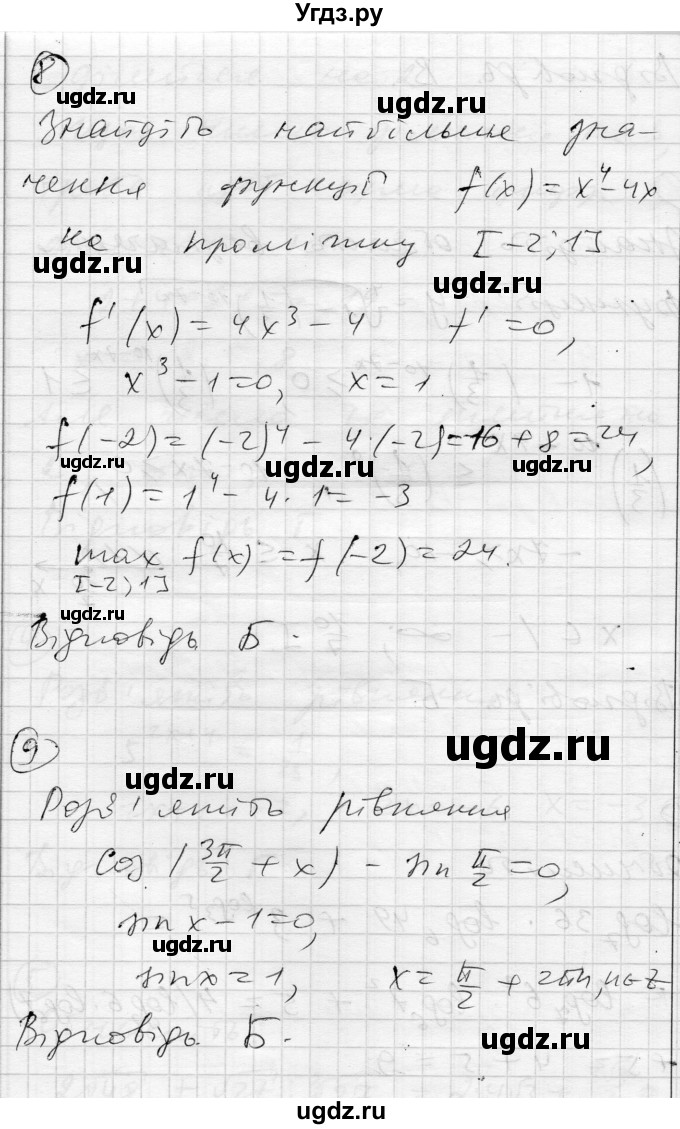 Угдз.ру
8
ugdz.ru ugdz.ru
Знайдіть найбільше зна-
чення функції f(x) = x⁴ - 4x
на проміжку [-2; 1]
ugdz.ru ugdz.ru
f'(x) = 4x³ - 4 f' = 0,
x³ - 1 = 0, x = 1
f(-2) = (-2)⁴ - 4·(-2) = 16 + 8 = 24,
ugdz.ru ugdz.ru ugdz.ru
f(1) = 1⁴ - 4·1 = -3
max f(x) = f(-2) = 24.
[-2; 1]
ugdz.ru ugdz.ru
ugdz.ru
Відповідь Б.
9
ugdz.ru
ugdz.ru
Розв'яжіть рівняння
cos(3π/2 + x) - sin π/2 = 0,
sin x - 1 = 0,
ugdz.ru ugdz.ru
sin x = 1, x = π/2 + 2πn, n∈Z
Відповідь Б.
ugdz.ru ugdz.ru
ugdz.ru